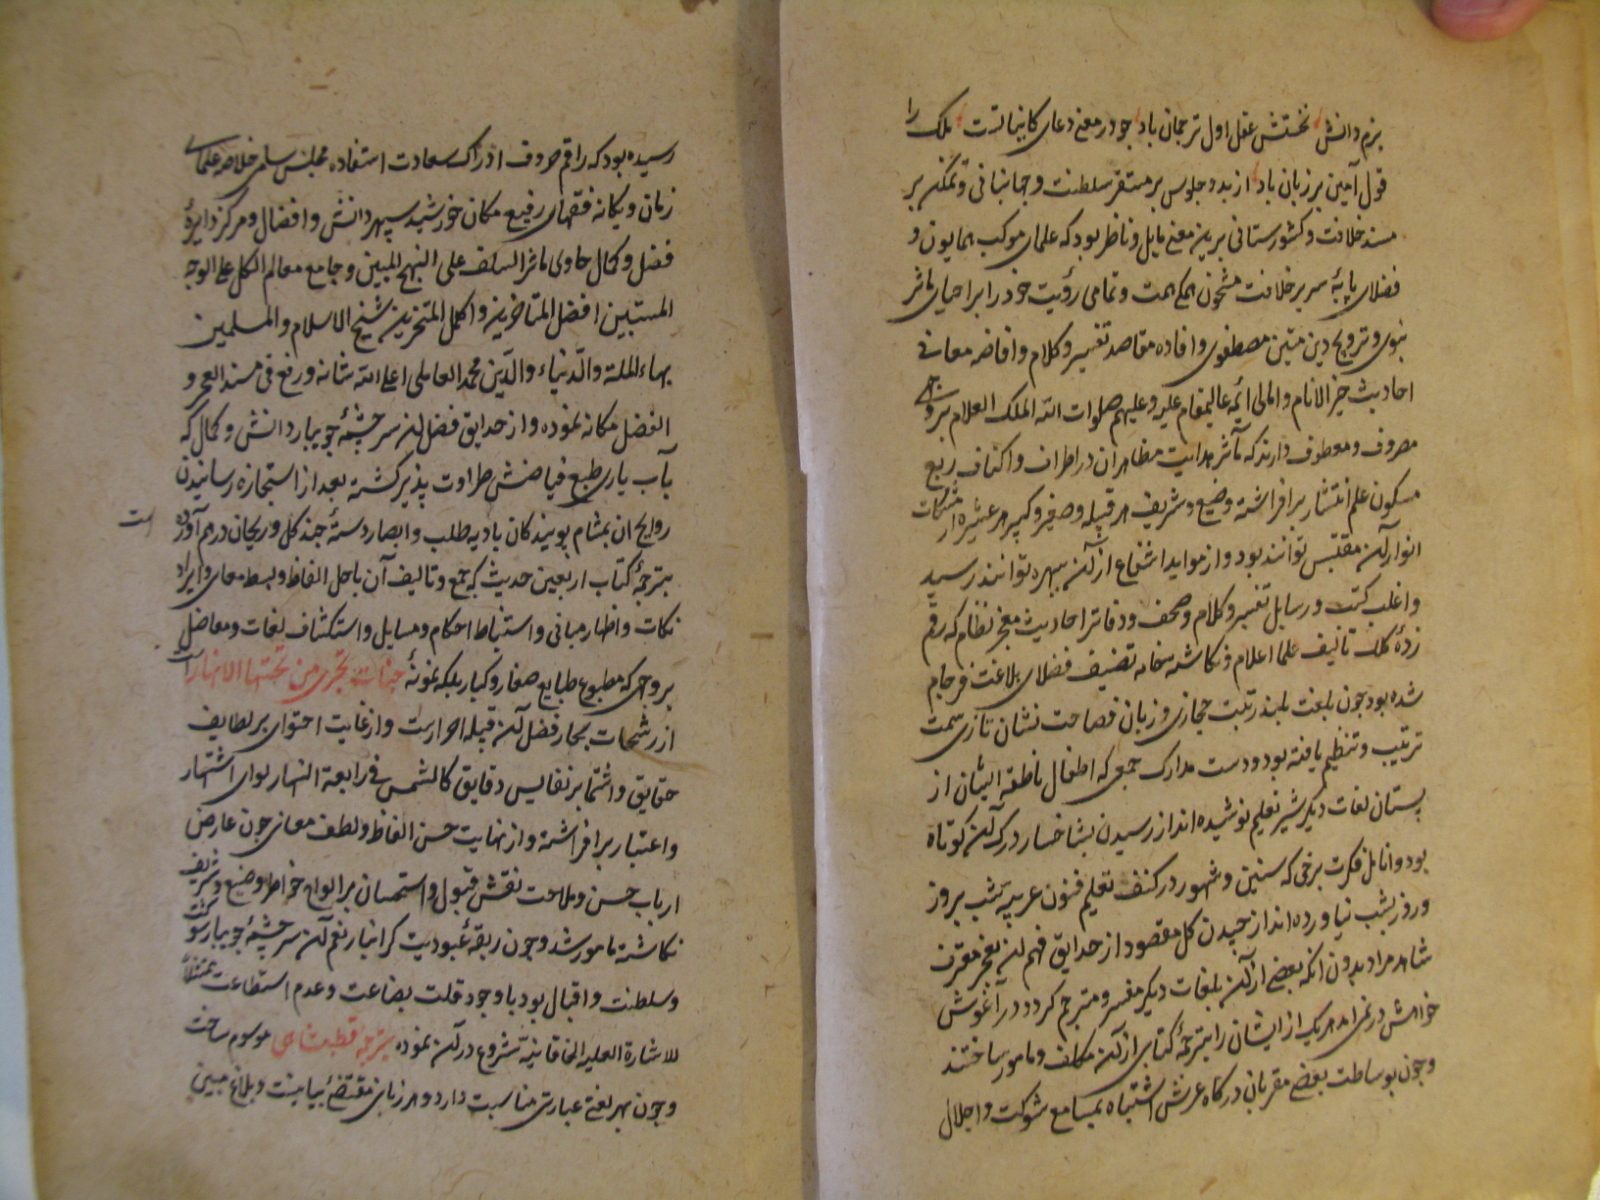 بزم دانش نخستش عقل اول ترجمان باد چو در معنی دعای کاینات است ملک را
قول آمین بر زبان باد از بدو جلوس بر مستقر سلطنت و جهانبانی و تمکن بر
مسند خلافت و کشورستانی برین معنی مایل و ناظر بود که علمای موکب همایون و
فضلای پایهٔ سریر خلافت مشحون همگی همت و تمامی رؤیت خود را بر احیای مآثر
نبوی و ترویج دین متین مصطفوی و افاده مقاصد تفسیر و کلام و افاضه معانی
احادیث خیر الانام و امالی ائمه عالیمقام علیه و علیهم صلوات الله الملک العلام بروجهی
مصروف و معطوف دارند که مآثر هدایت مظاهر آن در اطراف و اکناف ربع
مسکون علم انتشار برافراشته وضیع و شریف هر قبیله و صغیر و کبیر هر عشیره از مشکات
انوار آن مقتبس توانند بود و از مواید انتفاع از آن بهره توانند رسید
و اغلب کتب و رسایل تفسیر و کلام و صحف و دفاتر احادیث معجز نظام که رقم
زدهٔ کلک تالیف علما اعلام و نگاشته خامه تصنیف فضلای بلاغت فرجام
شده بود چون بلغت بلند رتبت حجازی و زبان فصاحت نشان تازی سمت
ترتیب و تنظیم یافته بود و دست مدارک جمعی که اطفال ناطقه ایشان از
پستان لغات دیگر شیر تعلیم نوشیده اند از رسیدن بشاخسار درک آن کوتاه
بود و انامل فکرت برخی که سنین و شهور در کنف تعلیم فنون عربیه شب بروز
و روز بشب نیاورده اند از چیدن گل مقصود از حدایق فهم آن بعجز معترف
شاهد مراد بدون آنکه بعضی از آن بلغات دیگر مفسر و مترجم گردد در آغوش
خواهش در نمی آمد هر یک از ایشان را بترجمهٔ کتابی از آن مکلف و مامور ساختند
و چون بوساطت بعضی مقربان درگاه عرش اشتباه بمسامع شوکت و اجلال
رسیده بود که راقم حروف ادراک سعادت استفاده مجلس سامی خلاصه علمای
زمان و یگانه فقهای رفیع مکان خورشید سپهر دانش و افضال و مرکز دایرهٔ
فضل و کمال حاوی ماثر السلف علی النهج المبین و جامع معالم الکل علی الوجه
المستبین افضل المتاخرین و اکمل المتبحرین شیخ الاسلام و المسلمین
بهاء الملة و الدنیاء و الدین محمد العاملی اعلی الله شانه و رفع فی مسند العز و
الفضل مکانه نموده و از حدایق فضل آن سرچشمهٔ جویبار دانش و کمال که
بآب یاری طبع فیاضش طراوت پذیر گشته بعد از استجازه رسانیدن
روایح آن بمشام پویندگان بادیه طلب و ابصار دستهٔ چند گل و ریحان درهم آورده است
بترجمهٔ کتاب اربعین حدیث که جمع و تالیف آن باحل الفاظ و بسط معانی و ایراد
نکات و اظهار مبانی و استنباط احکام و مسایل و استکشاف لغات و معاضل
بر وجهی که مطبوع طبایع صغار و کبار بلکه نمونهٔ جنات تجری من تحتها الانهار است
از رشحات بحار فضل آن قبیله احرارست و از غایت احتوای بر لطایف
حقایق و اشتمال بر نفایس دقایق کالشمس فی رابعة النهار لوای اشتهار
و اعتبار برافراشته و از نهایت حسن الفاظ و لطف معانی چون عارض
ارباب حسن و ملاحت نقش قبول و استحسان بر الواح خواطر وضیع و شریف
نگاشته مامور شد و چون ربقهٔ عبودیت گرانبار نعم آن سرچشمهٔ جویبار شوکت
و سلطنت و اقبال بود با وجود قلت بضاعت و عدم استطاعت ممتثلاً
للاشارة العلیة الخاقانیة شروع در آن نموده بترجمه قطبشاهی موسوم ساخت
و چون بهر لغتی عبارتی مناسبت دارد و هر زبانی مقتضی بیانیست و بلاغ مبین